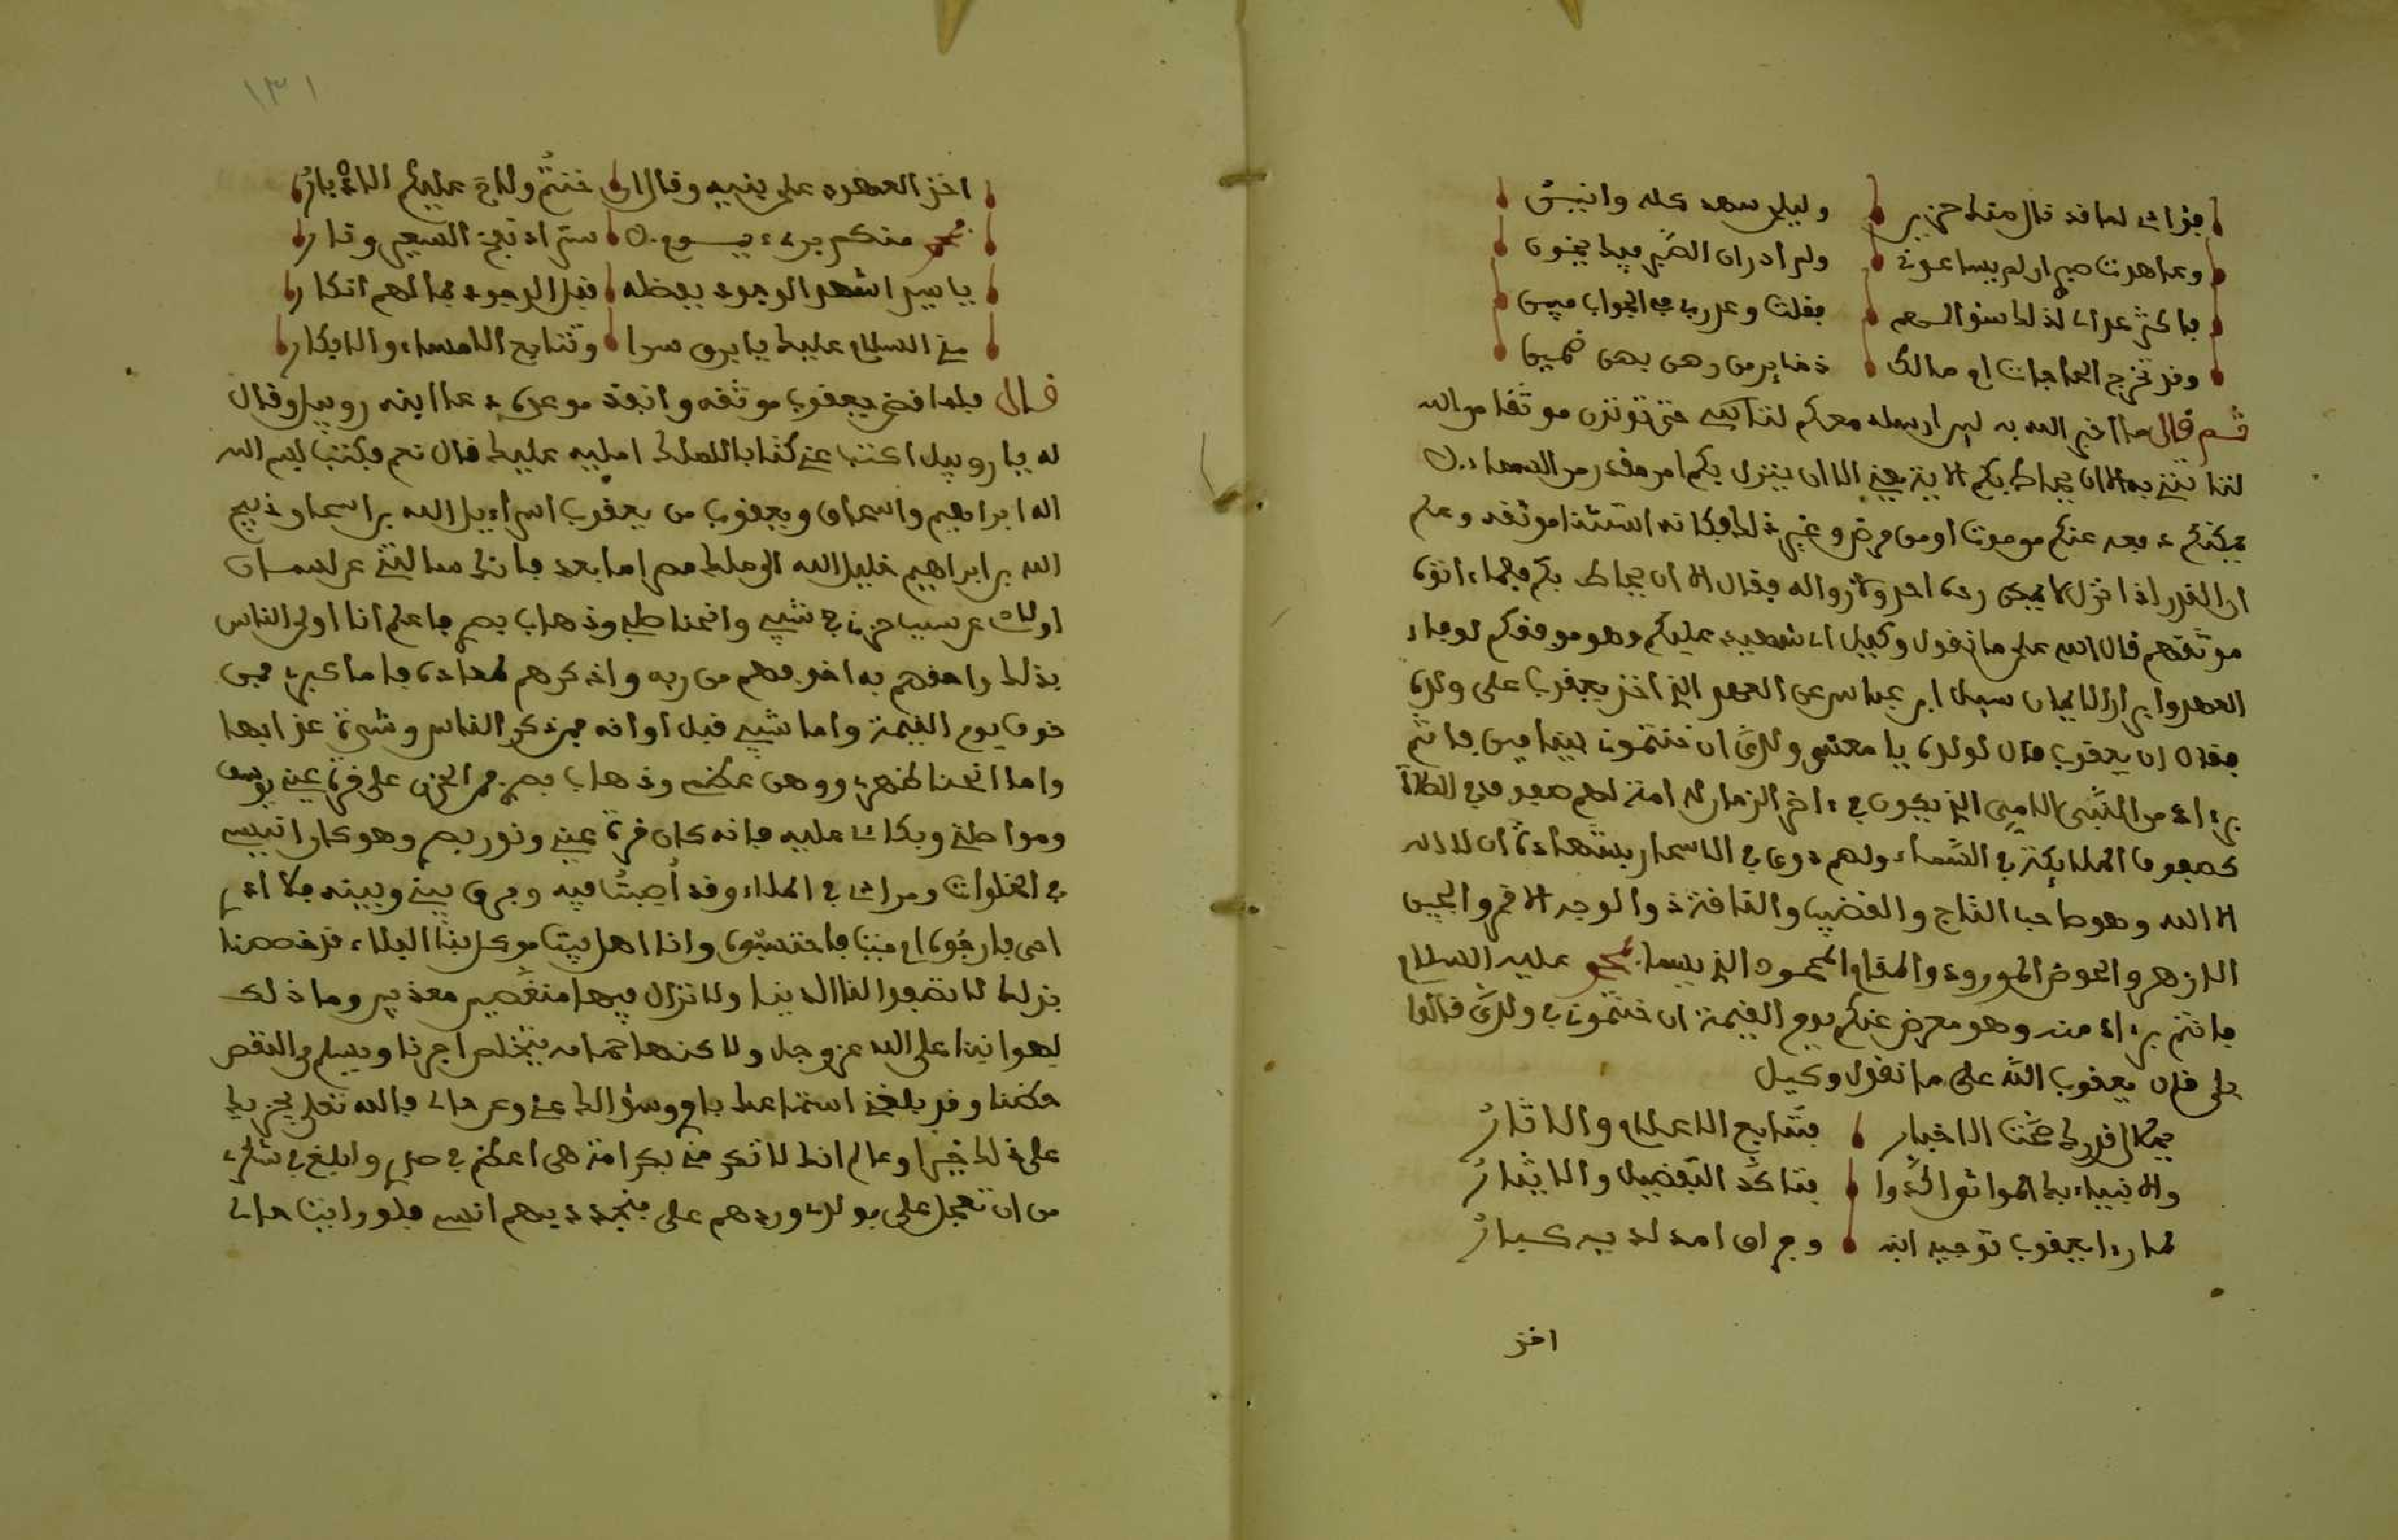 فؤادي لما قد نال منك حزين وليلي سهد كله وانين
وعاهدت صبرا لم يساعدني ولم ادر ان الصبر فيك يخون
فقلت وعذري في الجواب مبين
وقد تخرج الحاجات ام مالك ذخاير من رهن بهن ضمين
ثم قال ما أخبر الله به لن ارسله معكم لتأتينني حتى توتون موثقا من الله
لتاتنني به الا ان يحاط بكم الا ان ينزل بكم امر مقدر من السماء
عنكم موت او من مرض وغير ذلك فكانه استثنا موثقه وعلم
ان القدر اذا نزل لا يمكن رده احد ولا زواله فقال الا ان يحاط بكم فلما اتوه
موثقهم قال الله على ما نقول وكيل اي شهيد عليكم وهو موفقكم لوفاء
العهد وابرار الايمان سيل ابن عباس عن العهد الذي اخذ يعقوب على ولده
فقال ان يعقوب قال لولده يا معشر ولدي ان خنتموني بنيامين فانتم
برءاء من النبي الامي الذي يكون في ءاخر الزمان له امة لهم صفوف في الصلاة
كصفوف الملايكة في السماء ولهم دوي في الاسحار بشهادة ان لا اله
الا الله وهو صاحب التاج والقضيب والناقة والوجه الاقمر والجبين
الازهر والحوض المورود والمقام المحمود الذي يسمى محمد عليه السلام
فانتم برءاء منه وهو معرض عنكم يوم القيمة ان خنتموني في ولدي قالوا
بلى قال يعقوب الله على ما نقول وكيل
بكمال قدرك صحت الاخبار فتتابع الاعلام والاثار
والانبياء بك المواثق اكدوا فتاكد التفضيل والايثار
لما رءا يعقوب توجيه ابنه وفراق امد لديه كبار
اخذ
١٣١
اخذ العهود على بنيه وقال ان خنتم ولاة عليكم الادبار
محمد منكم بريء يسوءه ستر اذ تجن السعير ونار
يا سيدا شهد الوجود بفضله قبل الوجود فما لهم انكار
مني السلام عليك يا برق سرا وتتابع الامساء والابكار
قال فلما اخذ يعقوب موثقه وانفذ موعده دعا ابنه روبيل وقال
له يا روبيل اكتب عني كتابا للملك امليه عليك قال نعم فكتب بسم الله
اله ابراهيم واسحاق ويعقوب من يعقوب اسراءيل الله بن اسحاق ذبيح
الله بن ابراهيم خليل الله الى ملك مصر اما بعد فانك سالتني عن لسان
اولادي عن سبب حزني وشيبي وانحناء ظهري وذهاب بصري فاعلم انا اولى الناس
بذلك واحقهم به اخوفهم من ربه واذكرهم لمعاده فاما كبري فمن
خوف يوم القيمة واما شيبي قبل اوانه فمن ذكر النار وشدة عذابها
واما انحناء ظهري ووهن عظمي وذهاب بصري فمن الحزن على قرة عيني يوسف
ومواظبتي وبكاي عليه فانه كان قرة عيني ونور بصري وهو كان انيسي
في الخلوات ومراتي في الملاء وقد أصبت فيه وفرق بيني وبينه فلا ادري
احي فارجوه ام ميت فاحتسبه وانا اهل بيت موكل بنا البلاء قد خصصنا
بذلك لا تصفوا لنا الدنيا ولا نزال فيها منغصين معذبين وما ذلك
لهواننا على الله عز وجل ولا كنها حماية ليتخلص اجرنا ويسلم من النقص
حكمنا وقد بلغني استماعك باي وسؤالك عني وعن حالي فالله تعلى يجزيك
على ذلك خيرا وعالم انك لا تكرمني بكرامة هي اعظم في صدري وابلغ في شكري
من ان تعجل علي بولدي وردهم علي فتجدد بهم انسي فلو رايت حالي